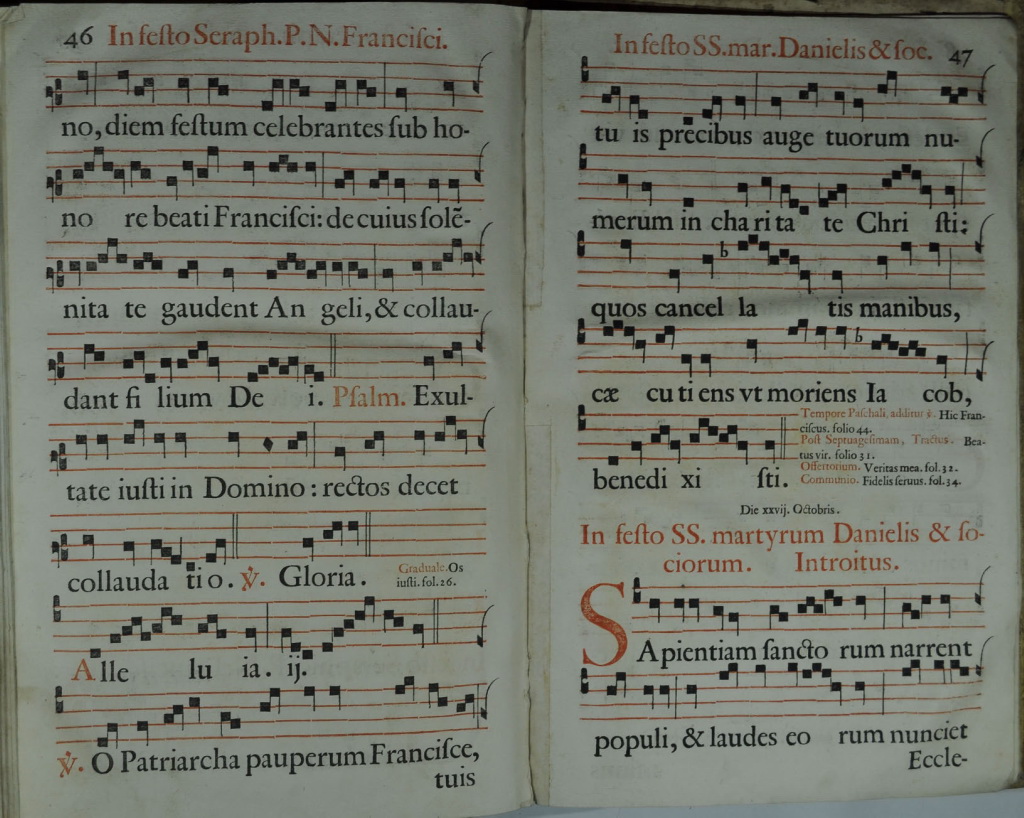 46 In feſto Seraph. P. N. Franciſci.
no, diem feſtum celebrantes ſub ho-
no re beati Franciſci: de cuius ſolẽ-
nita te gaudent An geli, & collau-
dant fi lium De i. Pſalm. Exul-
tate iuſti in Domino: rectos decet
collauda tio. ℣. Gloria. Graduale. Os
iuſti. fol. 26.
Alle lu ia. ij.
℣. O Patriarcha pauperum Franciſce,
tuis
In feſto SS. mar. Danielis & ſoc. 47
tu is precibus auge tuorum nu-
merum in cha ri ta te Chri ſti:
quos cancel la tis manibus,
cæ cu ti ens vt moriens Ia cob,
benedi xi ſti.
Tempore Paſchali, additur ℣. Hic Fran-
ciſcus. folio 44.
Poſt Septuageſimam, Tractus. Bea-
tus vir. folio 31.
Offertorium. Veritas mea. fol. 32.
Communio. Fidelis ſeruus. fol. 34.
Die xxvij. Octobris.
In feſto SS. martyrum Danielis & ſo-
ciorum. Introitus.
SApientiam ſancto rum narrent
populi, & laudes eo rum nunciet
Eccle-